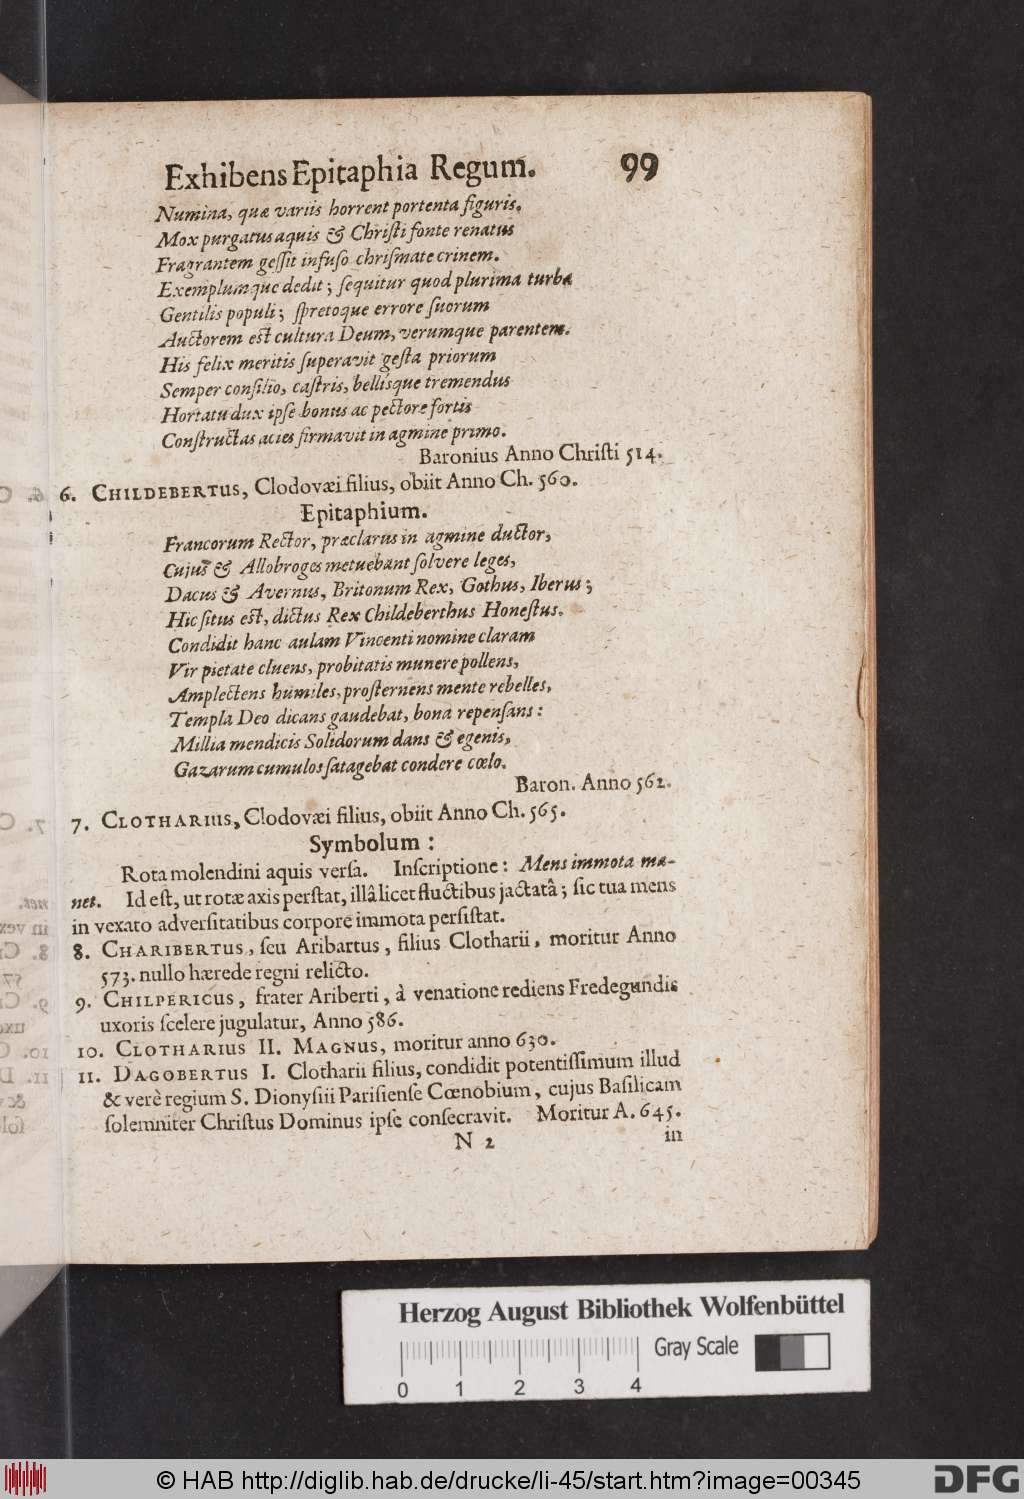 Exhibens Epitaphia Regum. 99
Numina, quæ variis horrent portenta figuris.
Mox purgatus aquis & Chriſti fonte renatus
Fragrantem geſſit infuſo chriſmate crinem.
Exemplumque dedit; ſequitur quod plurima turba
Gentilis populi; ſpretoque errore ſuorum
Auctorem eſt cultura Deum, verumque parentem.
His felix meritis ſuperavit geſta priorum
Semper conſilio, caſtris, bellisque tremendus
Hortatu dux ipſe bonus ac pectore fortis
Conſtructas acies firmavit in agmine primo.
Baronius Anno Chriſti 514.
6. CHILDEBERTUS, Clodovæi filius, obiit Anno Ch. 560.
Epitaphium.
Francorum Rector, præclarus in agmine ductor,
Cujus & Allobroges metuebant ſolvere leges,
Dacus & Avernus, Britonum Rex, Gothus, Iberus;
Hic ſitus eſt, dictus Rex Childeberthus Honeſtus.
Condidit hanc aulam Vincenti nomine claram
Vir pietate cluens, probitatis munere pollens,
Amplectens humiles, proſternens mente rebelles,
Templa Deo dicans gaudebat, bona repenſans:
Millia mendicis Solidorum dans & egenis,
Gazarum cumulos ſatagebat condere cœlo.
Baron. Anno 562.
7. CLOTHARIUS, Clodovæi filius, obiit Anno Ch. 565.
Symbolum:
Rota molendini aquis verſa. Inſcriptione: Mens immota ma-
net. Id eſt, ut rotæ axis perſtat, illâ licet fluctibus jactatâ; ſic tua mens
in vexato adverſitatibus corpore immota perſiſtat.
8. CHARIBERTUS, ſeu Aribartus, filius Clotharii, moritur Anno
573. nullo hærede regni relicto.
9. CHILPERICUS, frater Ariberti, à venatione rediens Fredegundis
uxoris ſcelere jugulatur, Anno 586.
10. CLOTHARIUS II. MAGNUS, moritur anno 630.
11. DAGOBERTUS I. Clotharii filius, condidit potentiſſimum illud
& verè regium S. Dionyſiii Pariſienſe Cœnobium, cujus Baſilicam
ſolemniter Chriſtus Dominus ipſe conſecravit. Moritur A. 645.
N 2 in
Herzog August Bibliothek Wolfenbüttel
Gray Scale
0 1 2 3 4
© HAB http://diglib.hab.de/drucke/li-45/start.htm?image=00345
DFG